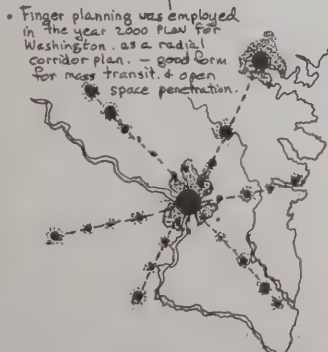 • Finger planning was employed
in the year 2000 PLAN for
Washington. as a radial
corridor plan. – good form
for mass transit. & open
space penetration.